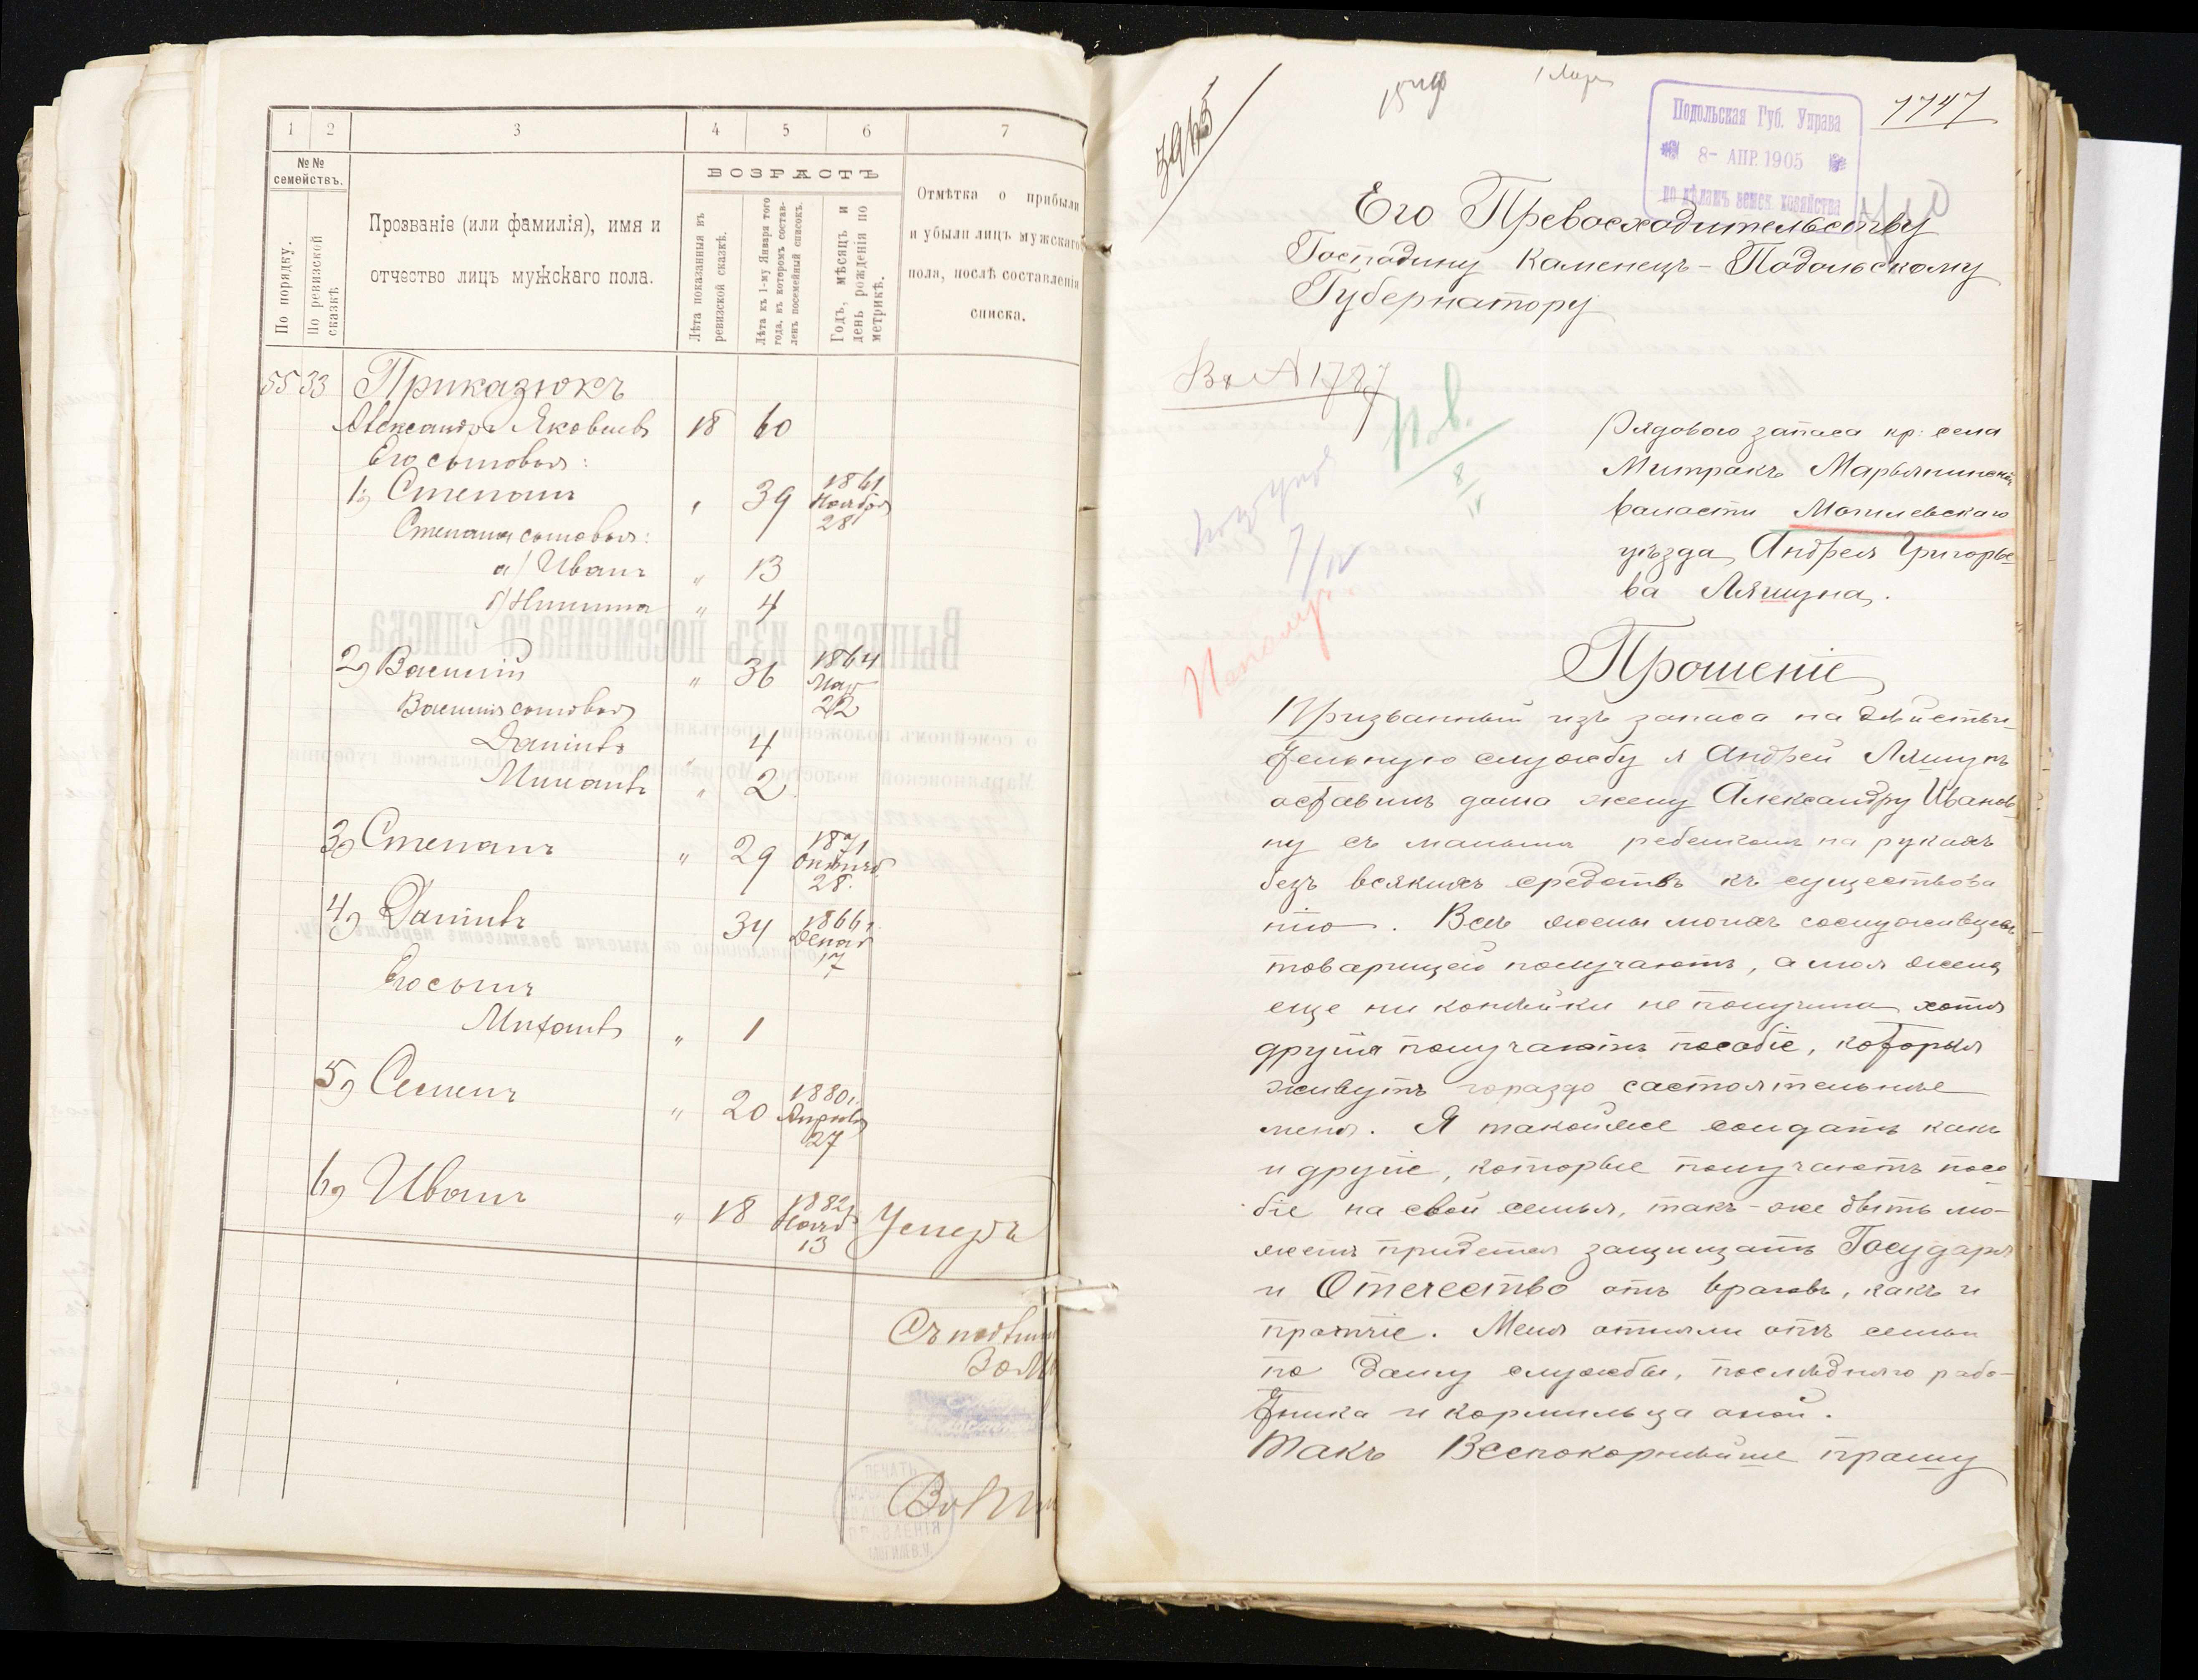 1 2 3 4 5 6 7
№№ семействъ.
По порядку.
По ревизской сказкѣ.
Прозваніе (или фамилія), имя и
отчество лицъ мужскаго пола.
ВОЗРАСТЪ
Лѣта показанныя въ ревизской сказкѣ.
Лѣта къ 1-му Января того года, въ которомъ составленъ посемейный списокъ.
Годъ, мѣсяцъ и день рожденія по метрикѣ.
Отмѣтка о прибыли
и убыли лицъ мужскаго
пола, послѣ составленія
списка.
55 33 Приказюкъ
Александръ Яковлевъ 18 60
Его сыновья:
1) Степанъ " 39 1861 Ноября 28
Степана сыновья:
а) Иванъ " 13
б) Никита " 4
2) Василій " 36 1864 22
Василія сыновья
Даніилъ " 4
Михаилъ " 2
3) Степанъ " 29 1871 Октября 28.
4) Даніилъ 34 1866 Декаб 17
Его сынъ
Михаилъ " 1
5) Семенъ " 20 1880 г. Апрѣля 27
6) Иванъ " 18 1882 Нояб 13 Умеръ
Съ подлин
ПЕЧАТЬ
ПРАВЛЕНІЯ
МОГИЛЕВ.У.
3915
1747
Подольская Губ. Управа
8- АПР. 1905
по дѣламъ земск. хозяйства
Его Превосходительству
Господину Каменецъ-Подольскому
Губернатору
1787
8/IV
7/IV
Рядового запаса кр: села
Митракъ Марьянинской
валасти Могилевскаго
уѣзда, Андрея Григорье
ва Ляшука.
Прошеніе
Призванный изъ запаса на дѣйстви-
тельную службу я Андрей Ляшукъ
оставилъ дома жену Александру Иванов
ну съ малымъ ребенкомъ на рукахъ
безъ всякихъ средствъ къ существова
нію. Всѣ жены моихъ сослуживцевъ
товарищей получаютъ, а моя жена
еще ни копѣйки не получила хотя
другія получаютъ пособіе, которыя
живутъ гораздо састоятельнѣе
меня. Я такойже солдатъ какъ
и другіе, которые получаютъ посо
біе на свои семьи, такъ-же быть мо-
жетъ придется защищать Государя
и Отечество отъ враговъ, какъ и
протчіе. Меня отняли отъ семьи
по далгу службы, послѣдняго рабо-
тника и кормильца оной.
Такъ Всепокорнѣйше прашу